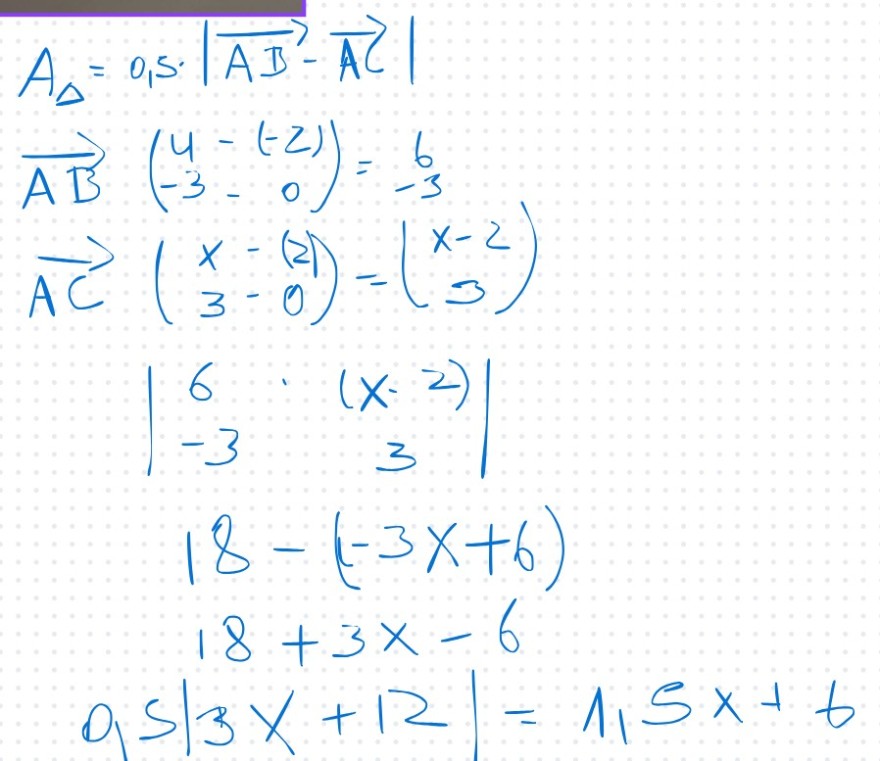 A△ = 0,5 · |AB→ - AC→|
AB→ (4 - (-2) / -3 - 0) = 6 / -3
AC→ (x - (2) / 3 - 0) = (x - 2 / 3)
| 6 · (x - 2) |
| -3 3 |
18 - (-3x + 6)
18 + 3x - 6
0,5 |3x + 12| = 1,5x + 6